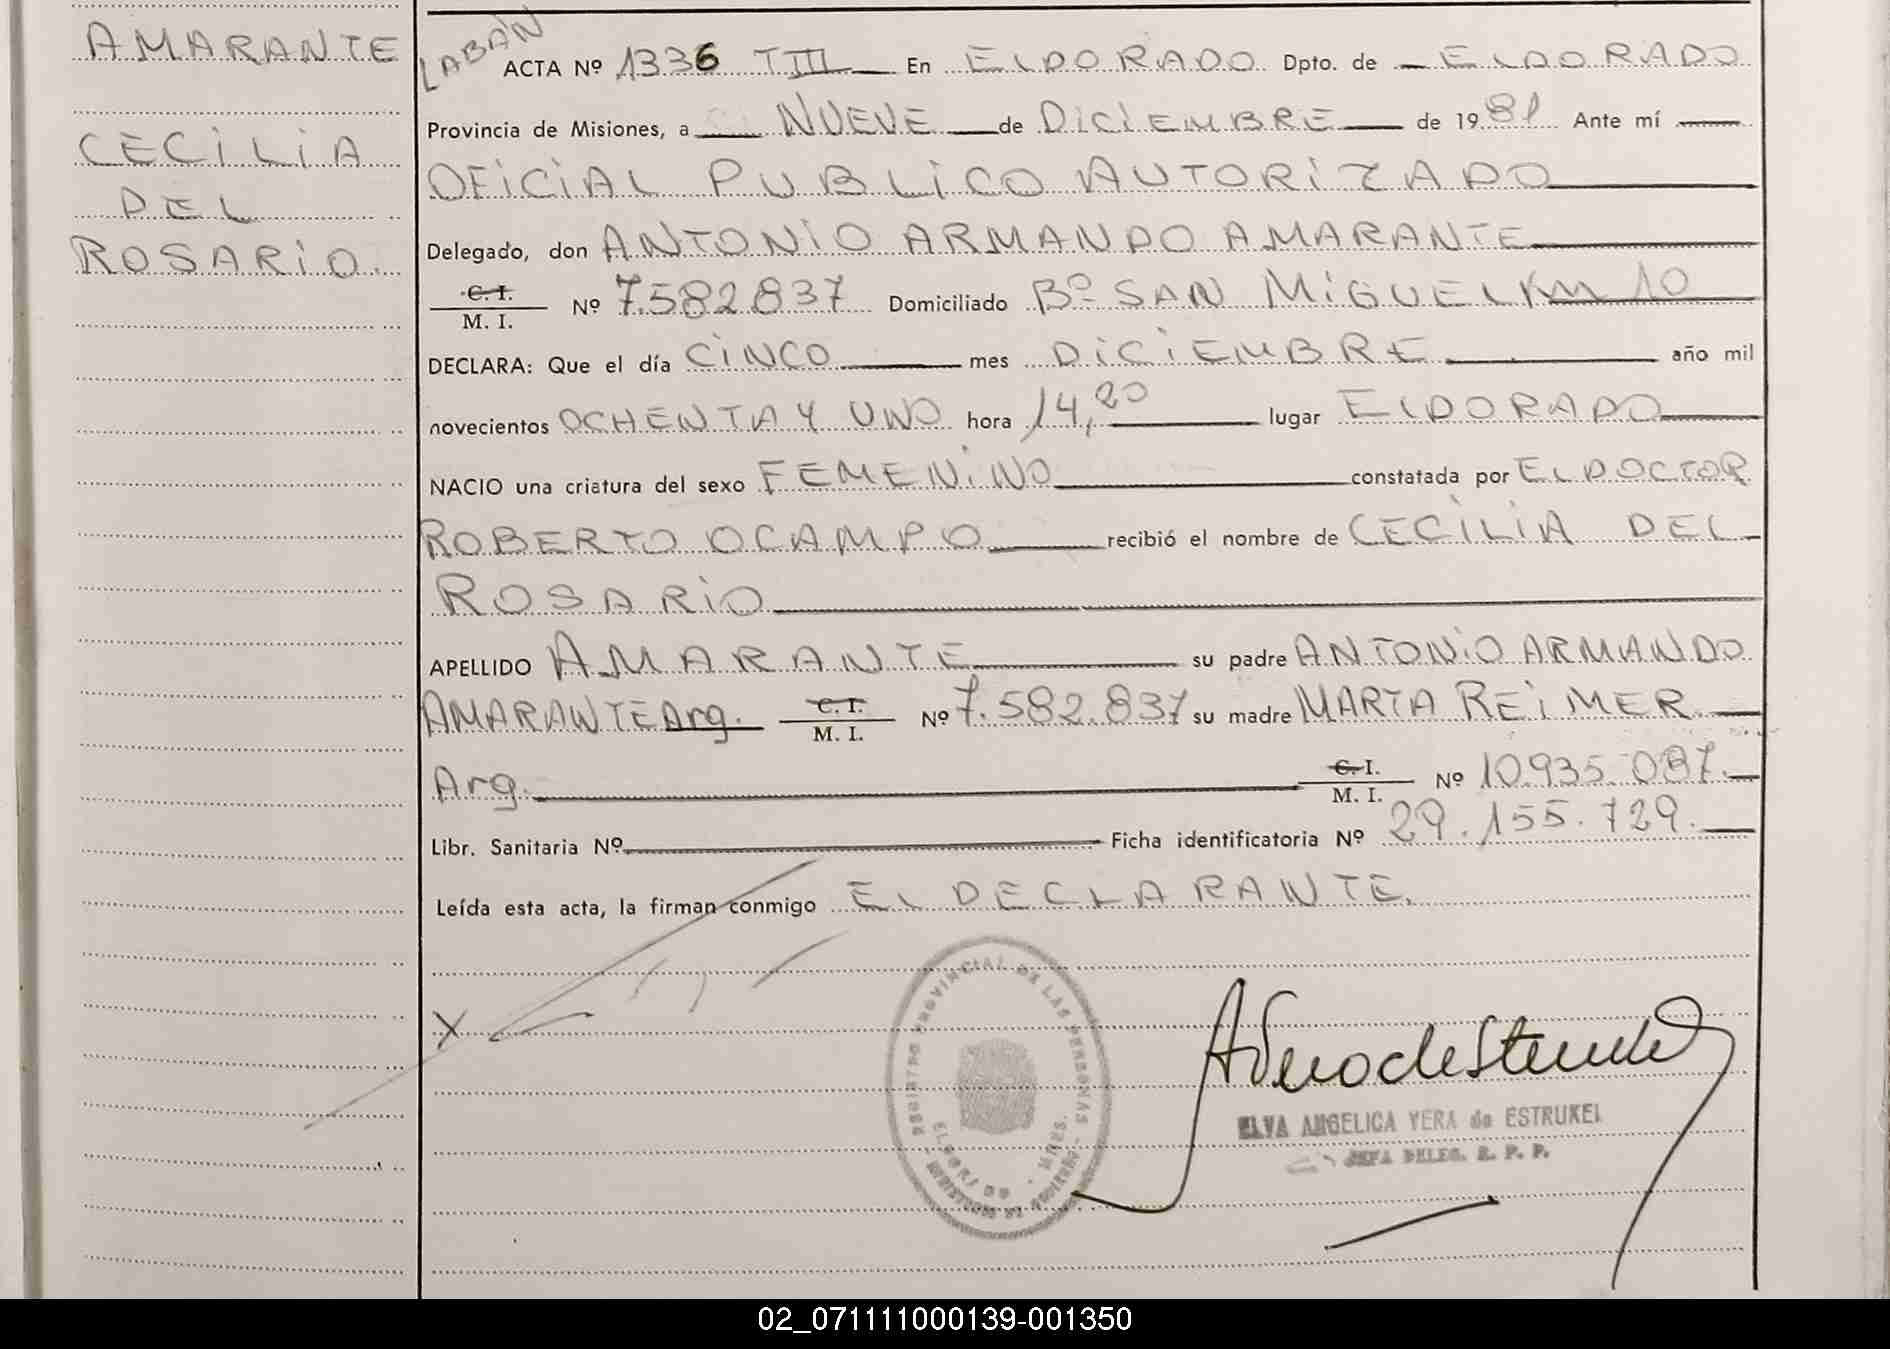 AMARANTE
CECILIA
DEL
ROSARIO.
LABAN
ACTA Nº 1336 TIII En ELDORADO Dpto. de ELDORADO
Provincia de Misiones, a NUEVE de DICIEMBRE de 1981 Ante mí
OFICIAL PUBLICO AUTORIZADO
Delegado, don ANTONIO ARMANDO AMARANTE
C. I.
M. I. Nº 7.582.837 Domiciliado Bº SAN MIGUEL KM 10
DECLARA: Que el día CINCO mes DICIEMBRE año mil
novecientos OCHENTA Y UNO hora 14,20 lugar ELDORADO
NACIO una criatura del sexo FEMENINO constatada por EL DOCTOR
ROBERTO OCAMPO recibió el nombre de CECILIA DEL
ROSARIO
APELLIDO AMARANTE su padre ANTONIO ARMANDO
AMARANTE Arg. C. I. M. I. Nº 7.582.837 su madre MARTA REIMER
Arg. C. I. M. I. Nº 10.935.087.
Libr. Sanitaria Nº Ficha identificatoria Nº 29.155.729.
Leída esta acta, la firman conmigo EL DECLARANTE.
X
REGISTRO PROVINCIAL DE LAS PERSONAS
ELDORADO - MNES.
MINISTERIO DE GOBIERNO
ELVA ANGELICA VERA de ESTRUKEL
JEFA DELEG. R. P. P.
02_071111000139-001350